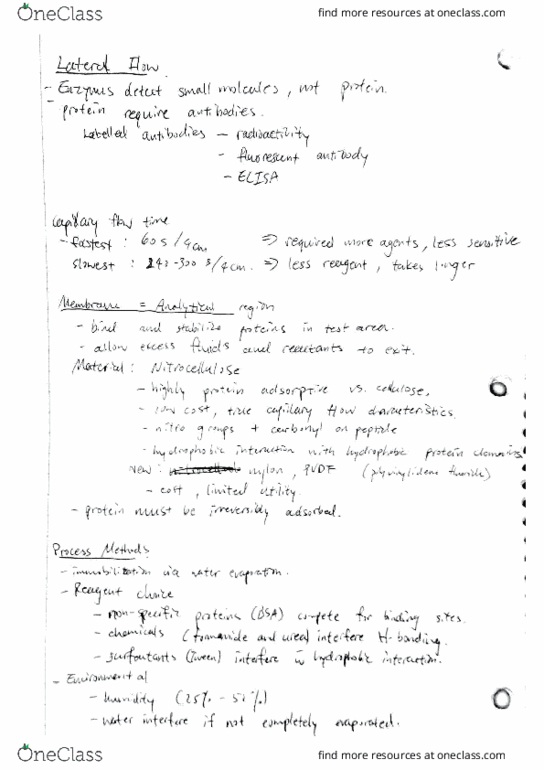 OneClass
find more resources at oneclass.com
Lateral Flow
- Enzymes detect small molcules, not protein.
- protein require antibodies.
Labelled antibodies - radioactivity
- fluorescent antibody
- ELISA
Capillary flow time
- fastest : 60s/4cm => required more agents, less sensitive
slowest : 240-300 s/4cm. => less reagent, takes longer
Membrane = Analytical region
- bind and stabilize proteins in test area.
- allow excess fluids and reactants to exit.
Material : Nitrocellulose
- highly protein adsorptive vs. cellulose.
- low cost, true capillary flow characteristics.
- nitro groups + carbonyl on peptide
- hydrophobic interaction with hydrophobic protein domains
New : nylon, PVDF (polyvinylidene fluoride)
- cost, limited utility.
- protein must be irreversibly adsorbed.
Process Methods
- immobilization via water evaporation.
- Reagent choice
- non-specific proteins (BSA) compete for binding sites.
- chemicals (formamide and urea) interfere H-bonding.
- surfactants (Tween) interfere w hydrophobic interaction.
- Environmental
- humidity (25% - 50%)
- water interfere if not completely evaporated.
OneClass
find more resources at oneclass.com